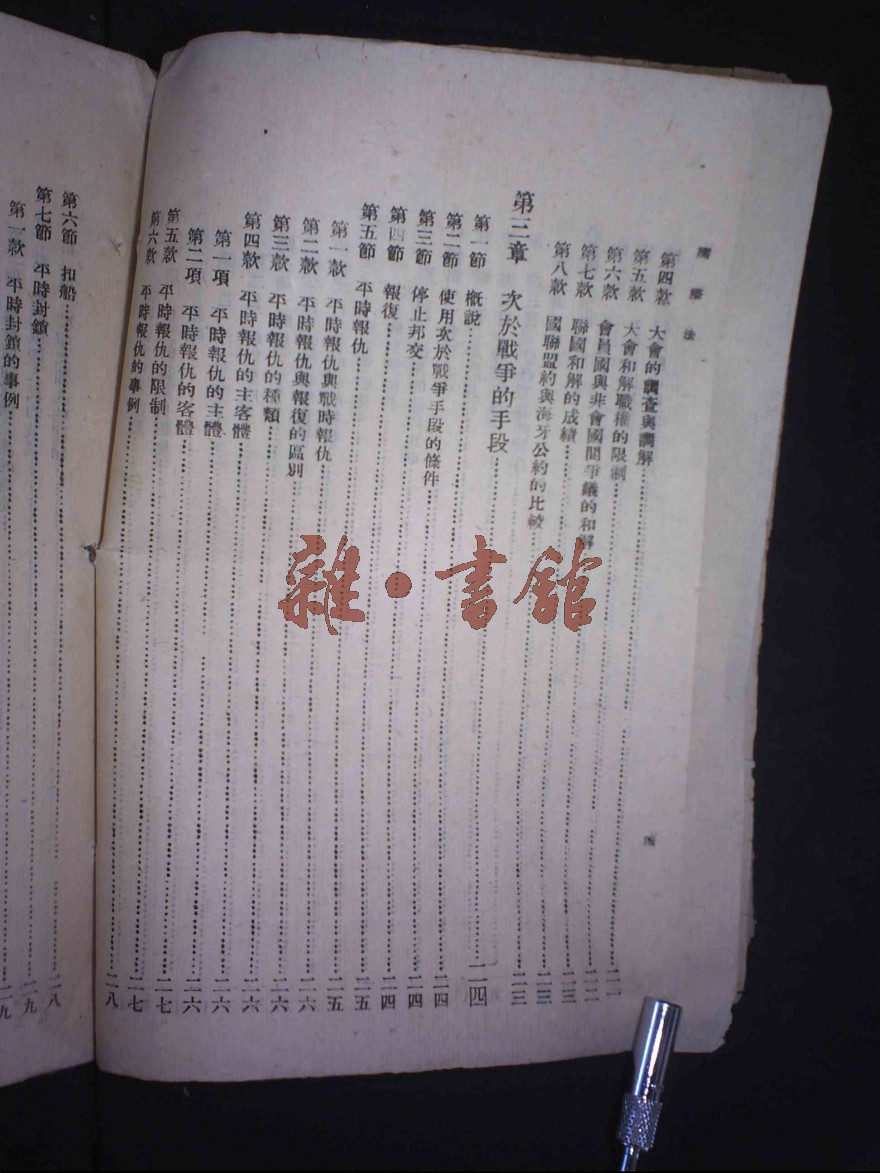 國際法
四
第四款 大會的調查與調解……二一
第五款 大會和解職權的限制……二二
第六款 會員國與非會國間爭議的和解……二三
第七款 聯國和解的成績……二三
第八款 國聯盟約與海牙公約的比較……二三
第三章 次於戰爭的手段……二四
第一節 概說……二四
第二節 使用次於戰爭手段的條件……二四
第三節 停止邦交……二四
第四節 報復……二五
第五節 平時報仇……二五
第一款 平時報仇與戰時報仇……二六
第二款 平時報仇與報復的區別……二六
第三款 平時報仇的種類……二六
第四款 平時報仇的主客體……二六
第一項 平時報仇的主體……二六
第二項 平時報仇的客體……二七
第五款 平時報仇的限制……二七
第六款 平時報仇的事例……二八
第六節 扣船……二八
第七節 平時封鎖……二九
第一款 平時封鎖的事例……二九
雜·書館